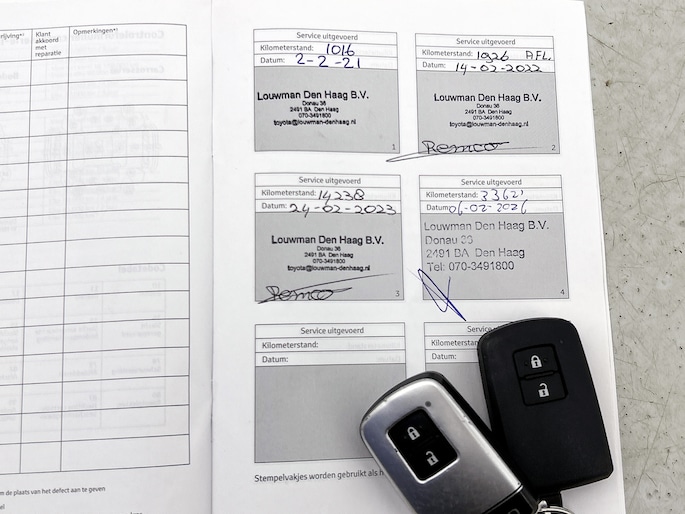 Klant
akkoord
met
reparatie
Opmerkingen*³
Service uitgevoerd
Kilometerstand: 1016
Datum: 2-2-21
Louwman Den Haag B.V.
Donau 36
2491 BA Den Haag
070-3491800
toyota@louwman-denhaag.nl
1
Service uitgevoerd
Kilometerstand: 1026 AFL.
Datum: 14-02-2022
Louwman Den Haag B.V.
Donau 36
2491 BA Den Haag
070-3491800
toyota@louwman-denhaag.nl
Remco
2
Service uitgevoerd
Kilometerstand: 14238
Datum: 24-02-2023
Louwman Den Haag B.V.
Donau 36
2491 BA Den Haag
070-3491800
toyota@louwman-denhaag.nl
Remco
3
Service uitgevoerd
Kilometerstand:
Datum: 06-02-2026
Louwman Den Haag B.V.
Donau
2491 BA Den Haag
Tel: 070-3491800
4
Service uitgevoerd
Kilometerstand:
Datum:
Service
Kilometerstand
Datum:
Stempelvakjes worden gebruikt als
de plaats van het defect aan te geven